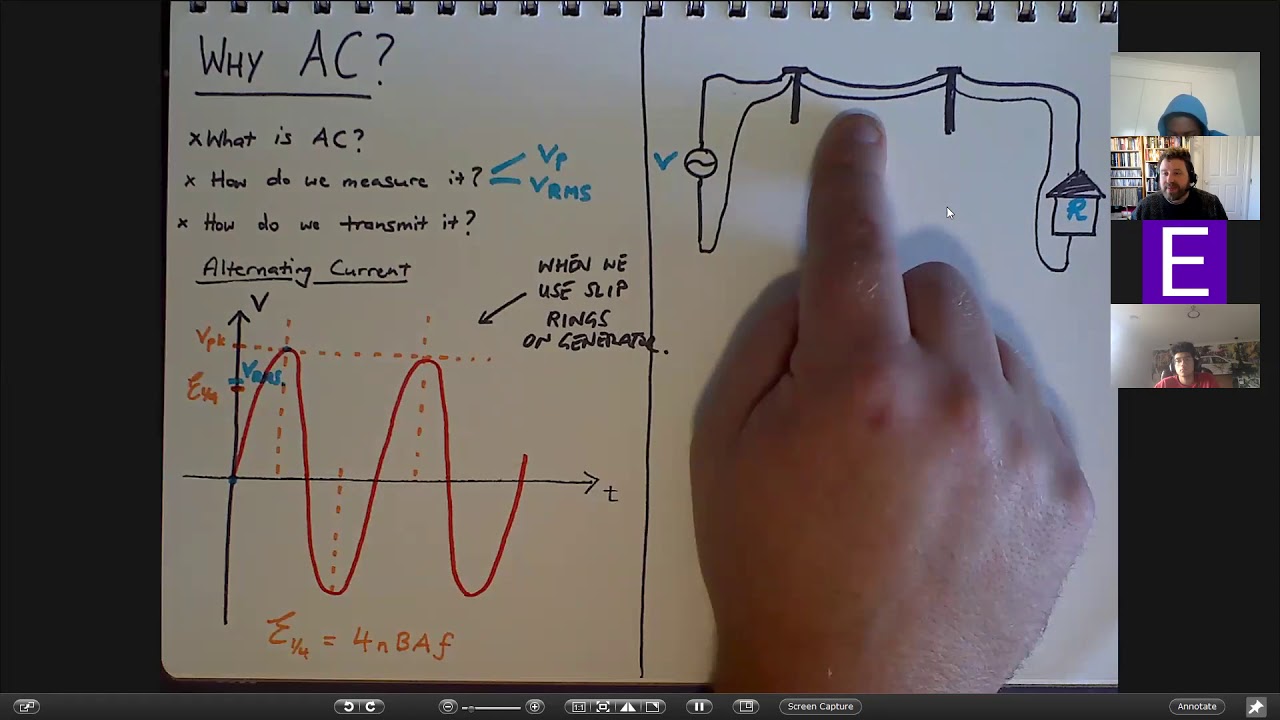 WHY AC?
x What is AC?
x How do we measure it? Vp
VRMS
x How do we transmit it?
Alternating Current
WHEN WE
USE SLIP
RINGS
ON GENERATOR.
V
Vpk
VRMS
ℰ1/4
t
ℰ1/4 = 4nBAf
V
R
E
1:1
Screen Capture
Annotate